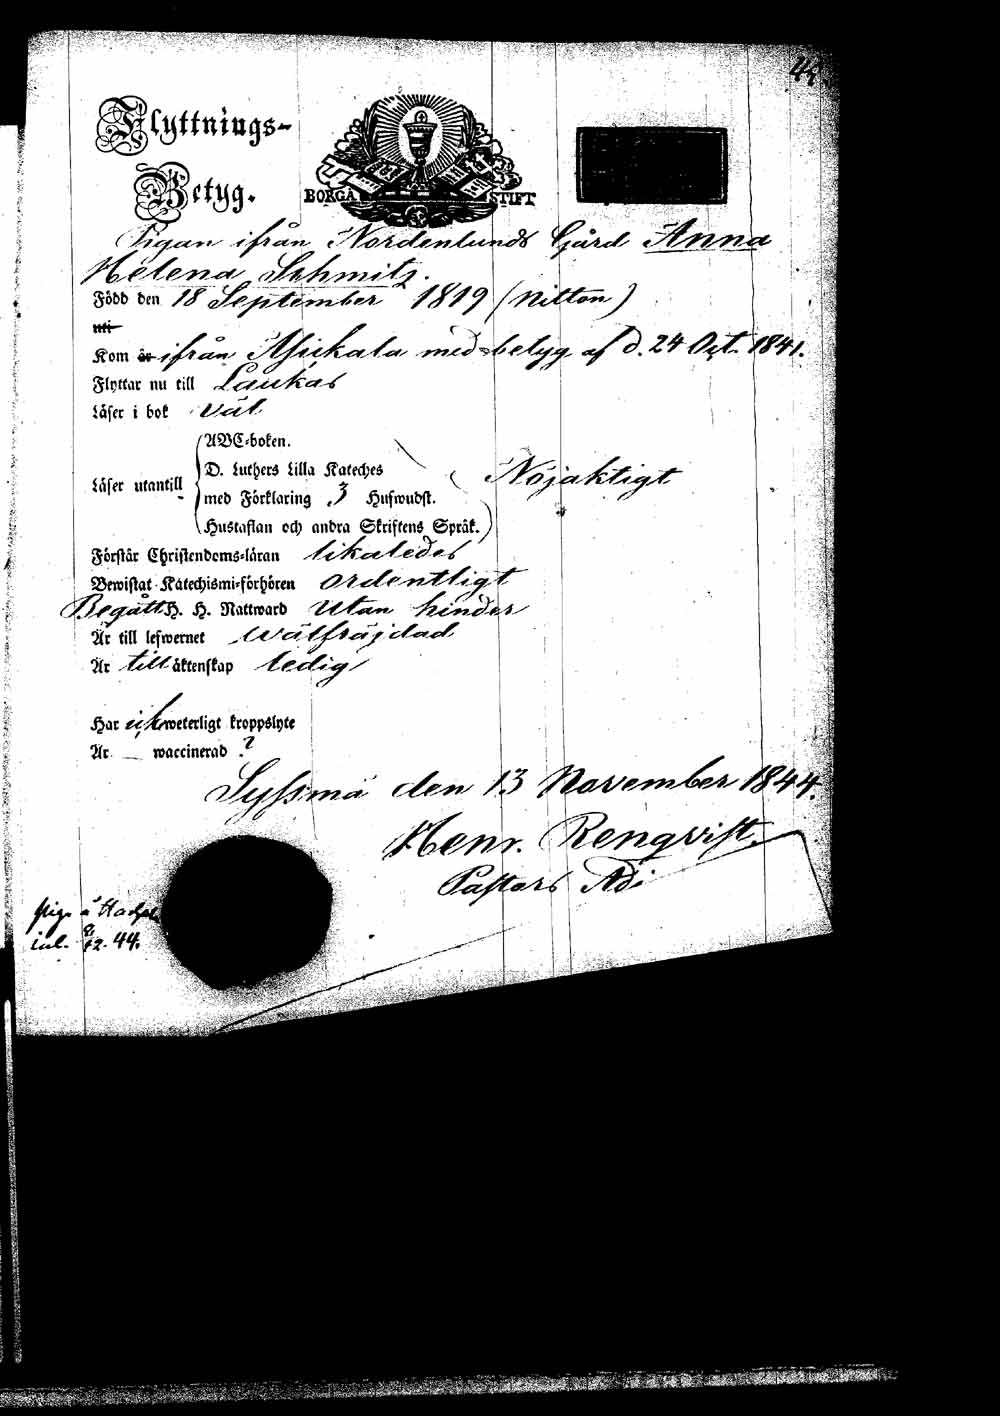 44.
Flyttnings-
Betyg.
BORGÅ STIFT
Pigan ifrån Nordenlunds Gård Anna
Helena Schmitz.
Född den 18 September 1819 (Nitton)
uti
Kom är ifrån Asickala med betyg af d. 24 Oct. 1841.
Flyttar nu till Laukas
Läser i bok väl
Läser utantill
ABC-boken.
D. Luthers Lilla Kateches
med Förklaring 3 Hufwudst.
Hustaflan och andra Skriftens Språk.
Nöjaktigt
Förstår Christendoms-läran likaledes
Bewistat Katechismi-förhören ordentligt
Begått H. H. Nattward utan hinder
Är till lefwernet Wälfräjdad
Är till äktenskap ledig
Har ick weterligt kroppslyte
Är — waccinerad ?
Syssmä den 13 November 1844.
Henr. Renqvist.
Pastors Adj
inl. 8/12. 44.